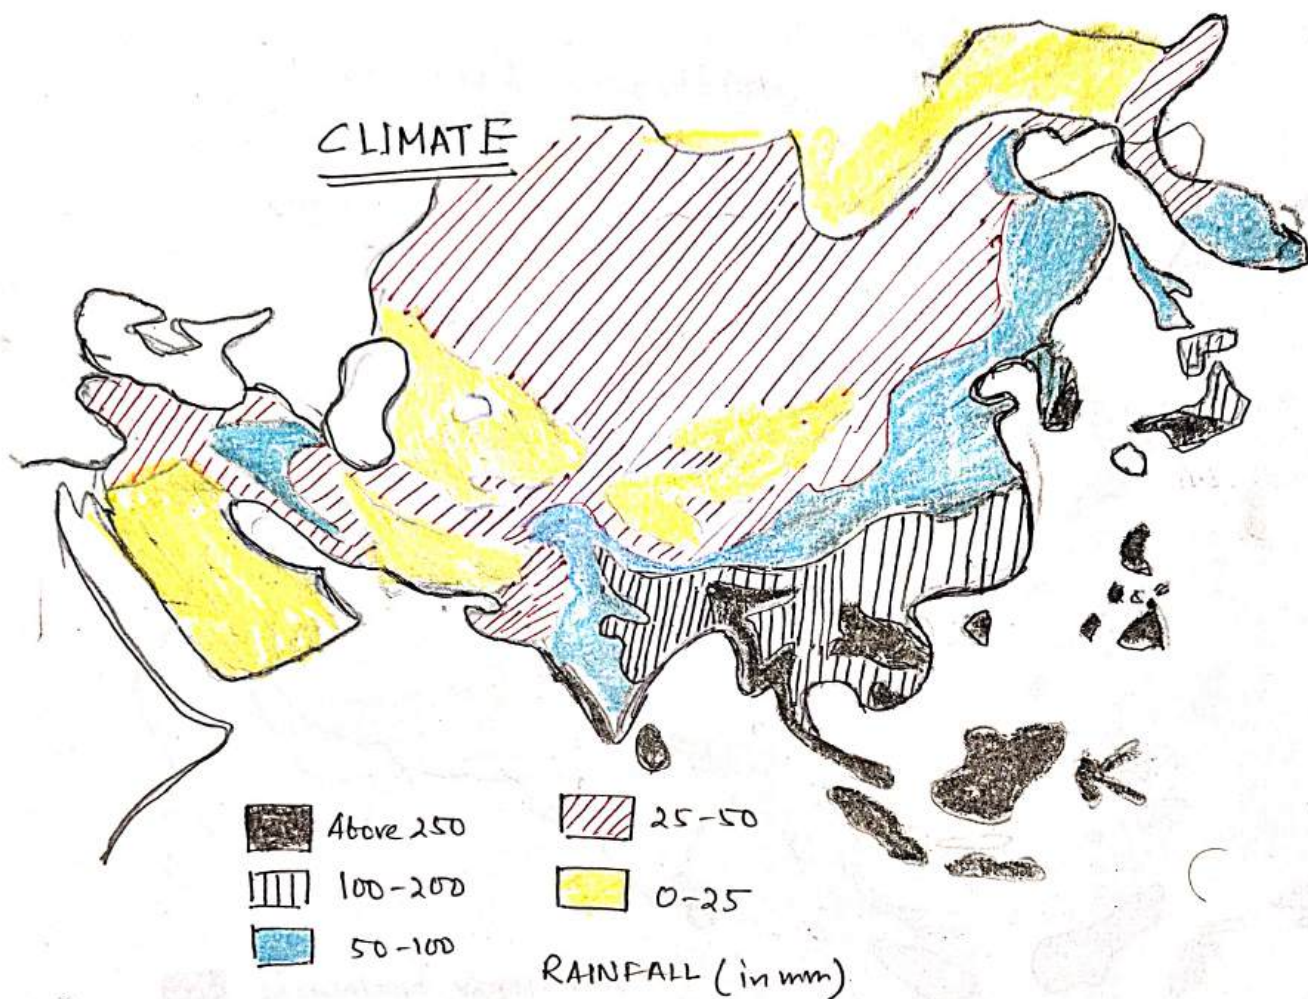 CLIMATE
Above 250
100-200
50-100
25-50
0-25
RAINFALL (in mm)